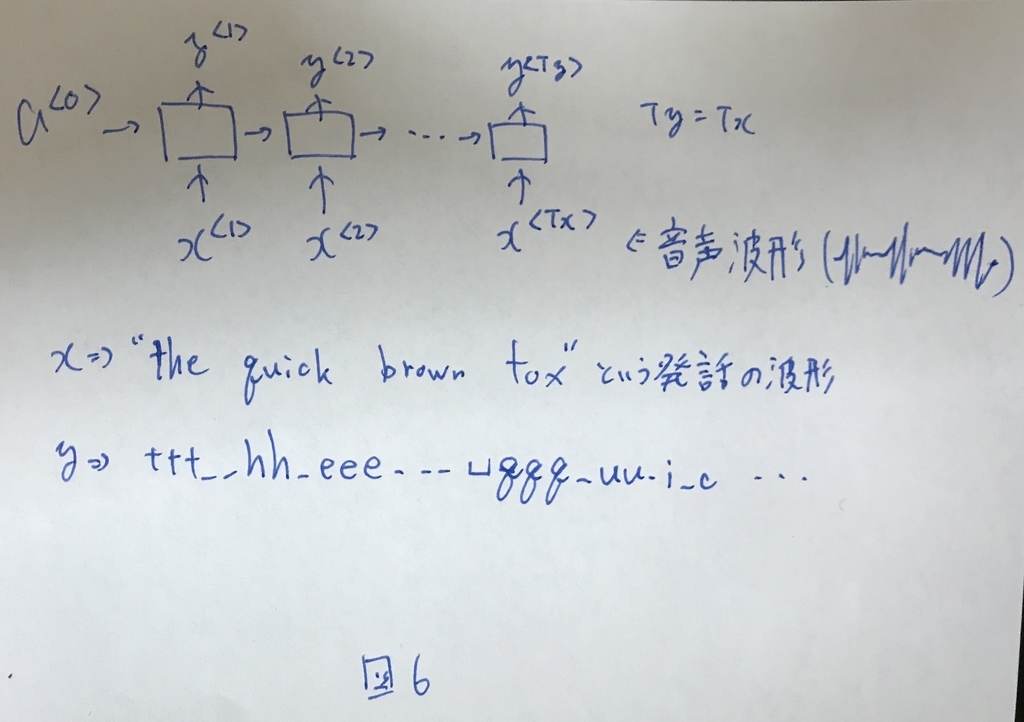 y<1> y<2> y<Ty>
a<0> → → → ... → Ty = Tx
x<1> x<2> x<Tx> ⇐ 音声波形 ( )
x⇒ "the quick brown fox" という発話の波形
y⇒ ttt__hh_eee---␣qqq_uu-i_c ...
図6